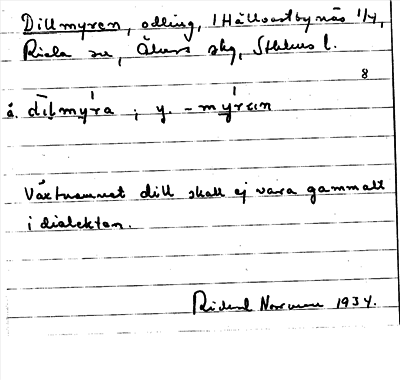 Dillmyren, odling, 1 Hållvastbynäs 1/4,
Riala sn, Åkers skg, Sthlms l.
8
å. dılmy̅ra ; y. - my̅ren
Växtnamnet dill skall ej vara gammalt
i dialekten.
Rickard 1934.